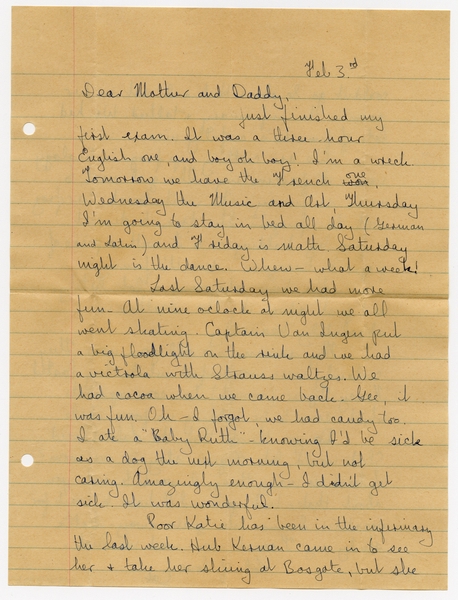 Feb 3rd
Dear Mother and Daddy,
Just finished my
first exam. It was a three hour
English one, and boy oh boy! I'm a wreck.
Tomorrow we have the French one
Wednesday the Music and Art Thursday
I'm going to stay in bed all day (German
and Latin) and Friday is math. Saturday
night is the dance. Whew - what a week!
Last Saturday we had more
fun - At nine oclock at night we all
went skating. Captain Van Ingen put
a big floodlight on the rink and we had
a victrola with Strauss waltzes. We
had cocoa when we came back. Gee, it
was fun. Oh - I forgot, we had candy too.
I ate a "Baby Ruth" - knowing I'd be sick
as a dog the next morning, but not
caring. Amazingly enough - I didn't get
sick. It was wonderful.
Poor Katie has been in the infirmary
the last week. Hub Kernan came in to see
her + take her skiing at but she